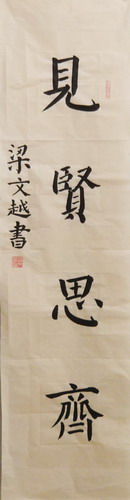 見賢思齊
梁文越書